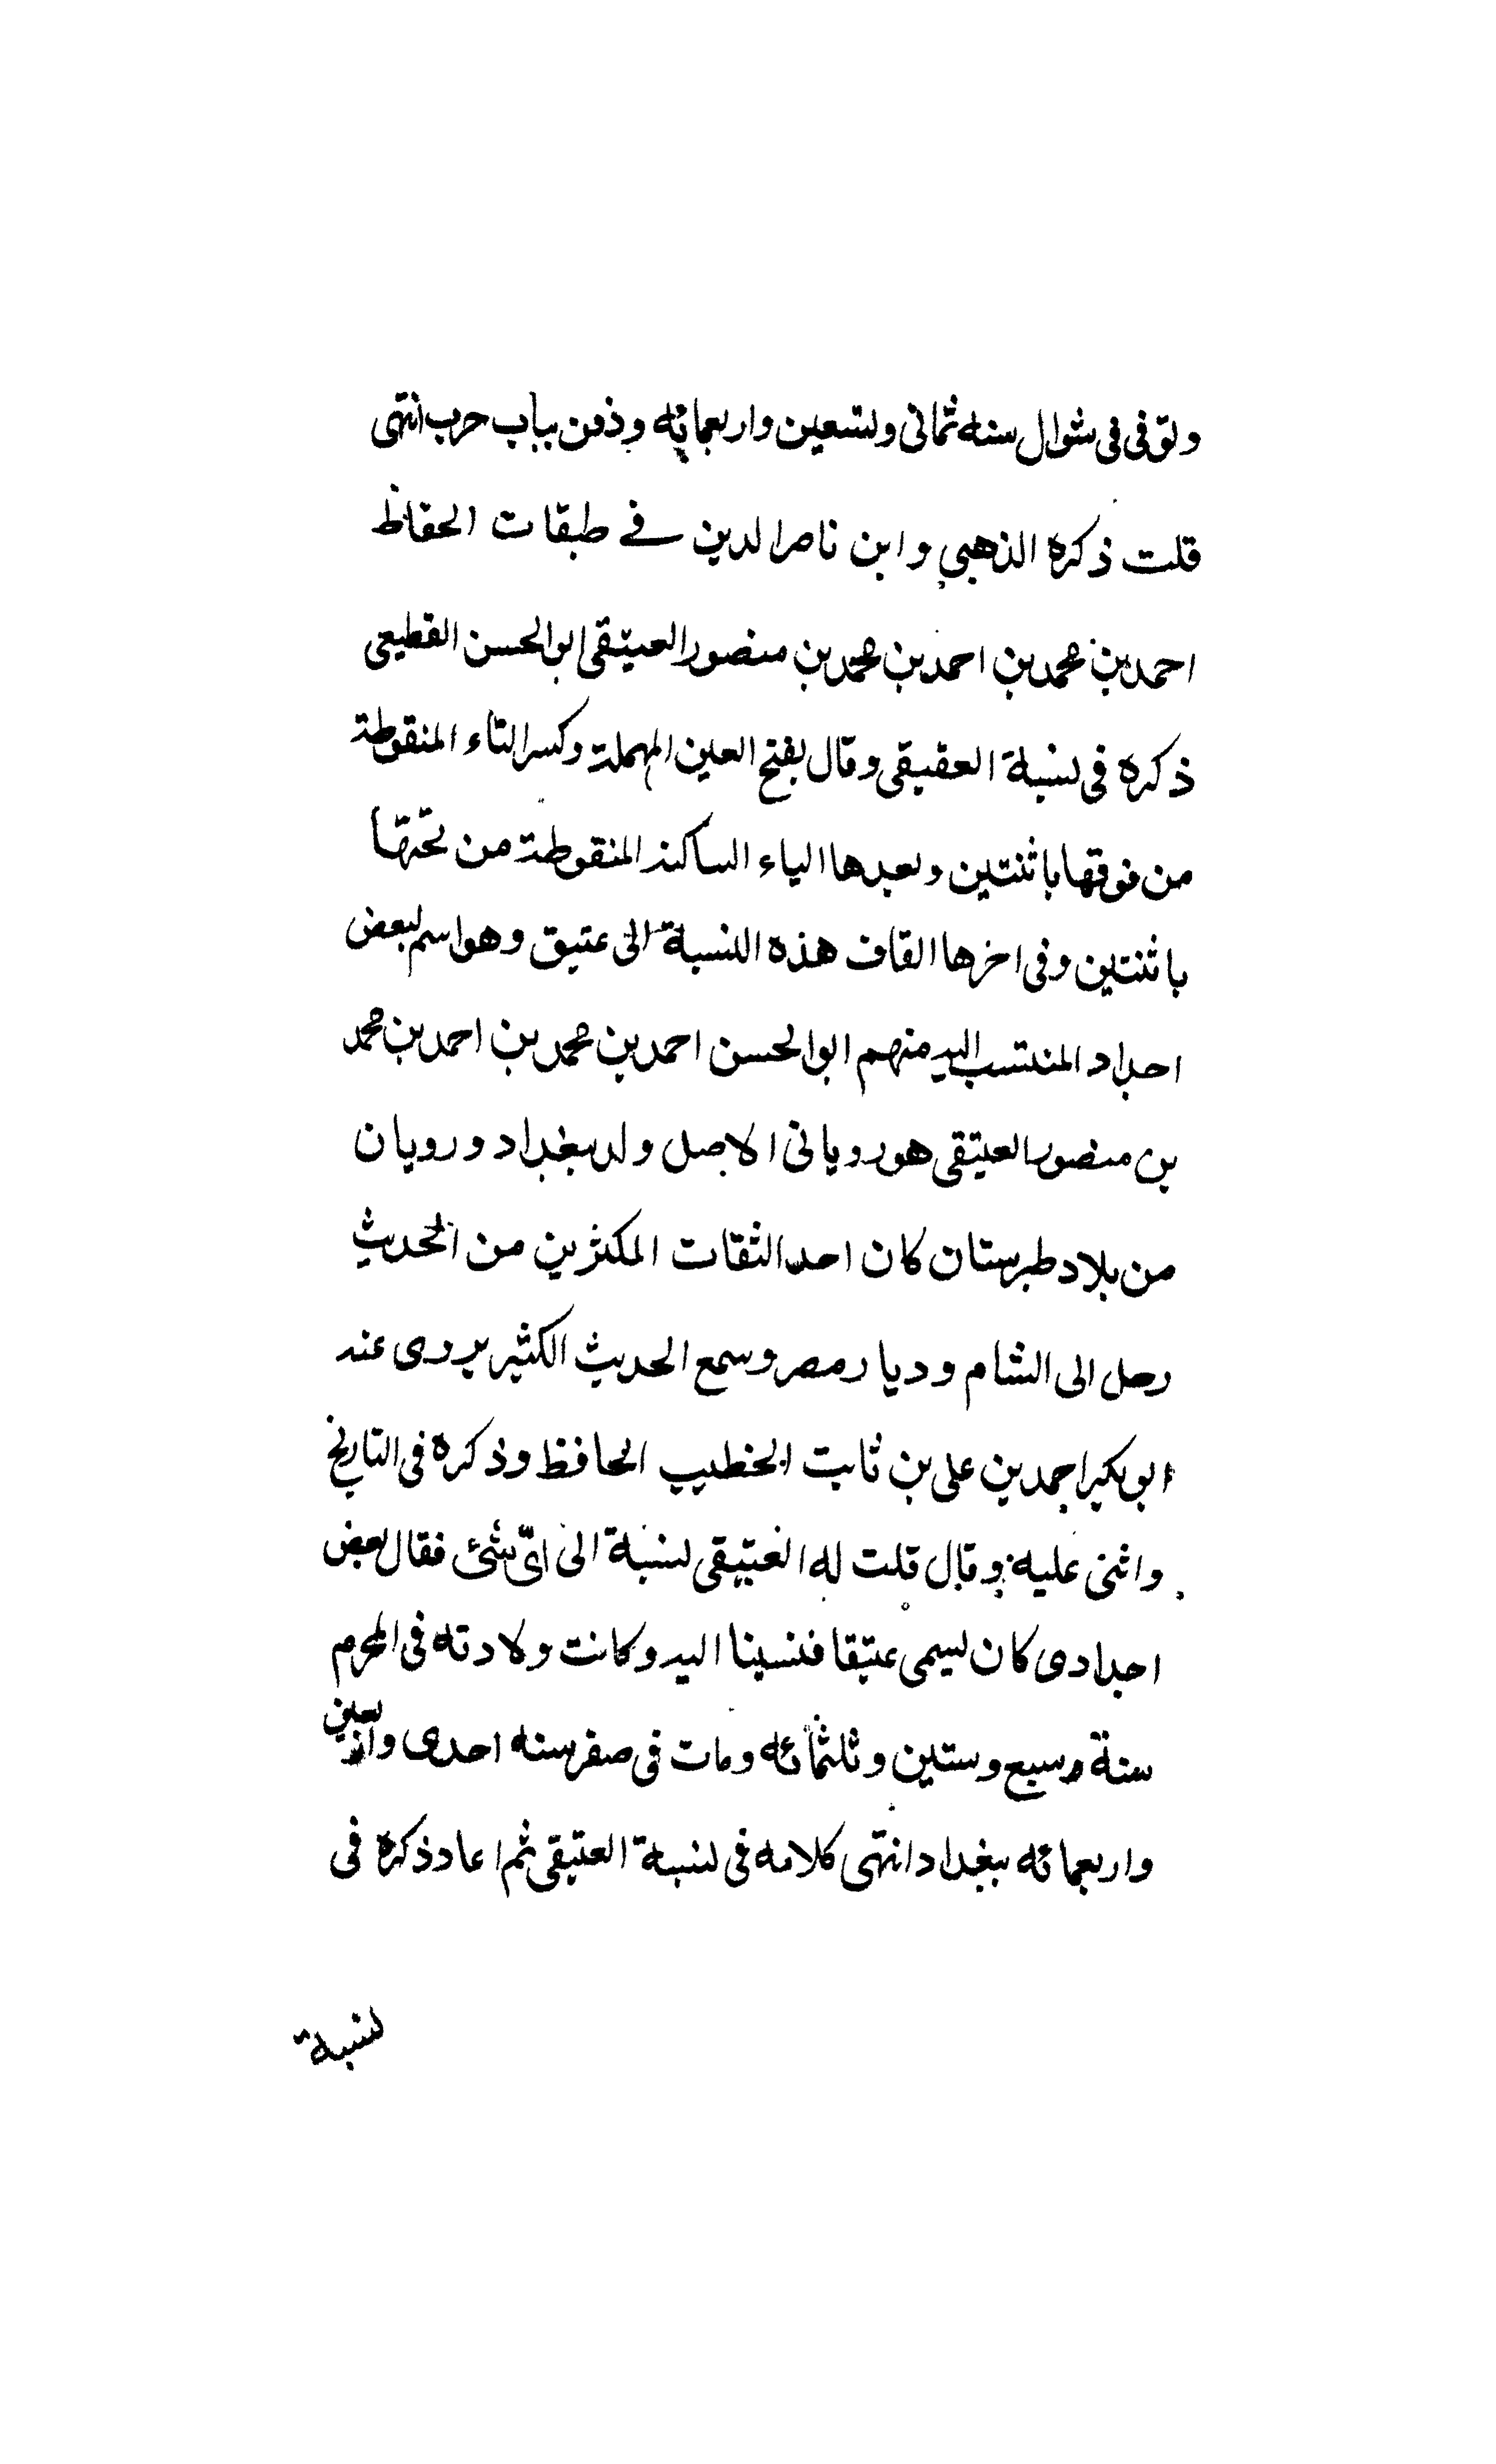 وتوفى فى شوال سنه ثمانى وتسعين واربعمائه ودفن بباب حرب انتهى
قلت ذكره الذهبي وابن ناصر الدين في طبقات الحفاظ
احمد بن محمد بن احمد بن محمد بن منصور العتيقى ابو الحسن القطيعى
ذكره فى نسبة العقيقى وقال بفتح العين المهملة وكسر التاء المنقوطة
من فوقها باثنتين وبعدها الياء الساكنة المنقوطة من تحتها
باثنتين وفى اخرها القاف هذه النسبة الى عتيق وهو اسم لبعض
اجداد المنتسب اليه منهم ابو الحسن احمد بن محمد بن احمد بن محمد
بن منصور العتيقى هو رويانى الاصل ولد ببغداد ورويان
من بلاد طبرستان كان احد الثقات المكثرين من الحديث
رحل الى الشام وديار مصر وسمع الحديث الكثير يروى عنه
ابو بكر احمد بن على بن ثابت الخطيب الحافظ وذكره فى التاريخ
واثنى عليه وقال قلت له العتيقى نسبة الى اىّ شئ فقال بعض
اجدادى كان يسمى عتيقا فنسبنا اليه وكانت ولادته فى المحرم
سنة سبع وستين وثلثمائه ومات فى صفر سنه احدى واربعين
واربعمائه ببغداد انتهى كلامه فى نسبة العتيقى ثم اعاد ذكره فى
نسبة